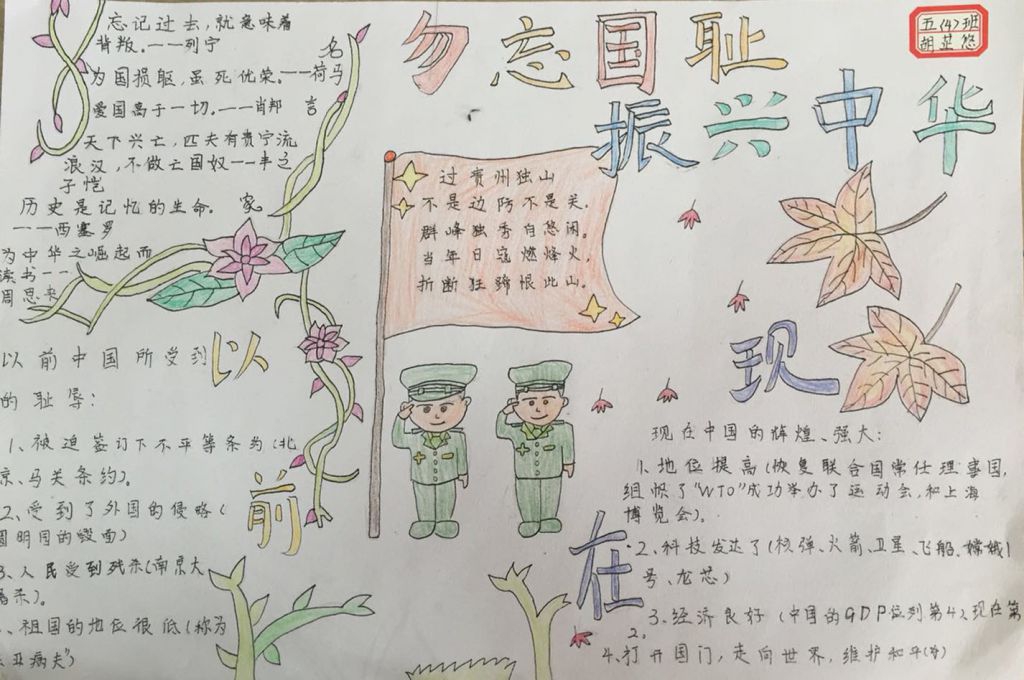 勿忘国耻
振兴中华
五(4)班
胡芷悠
忘记过去,就意味着
背叛。——列宁
为国损躯,虽死优荣。——荷马
名
爱国高于一切。——肖邦
言
天下兴亡,匹夫有责宁流
浪汉,不做亡国奴——丰之
子恺
历史是记忆的生命。
家
——西塞罗
为中华之崛起而
读书——
周恩来
过贵州独山
不是边防不是关。
群峰独秀自悠闲。
当年日寇燃烽火,
折断狂蹄恨此山。
以前
以前中国所受到
的耻辱:
1、被迫签订下不平等条约(北
京、马关条约)。
2、受到了外国的侵略(
圆明园的
3、人民受到残杀(南京大
屠杀)。
、祖国的地位很低(称为
东亚病夫")
现在
现在中国的辉煌、强大:
1、地位提高(恢复联合国常任理事国,
组织了"WTO"成功举办了运动会,和上海
博览会)。
2、科技发达了(核弹、火箭、卫星、飞船、嫦娥1
号、龙芯)
3、经济良好(中国的GDP位列第4,现在第
2。
4、打开国门,走向世界,维护和平